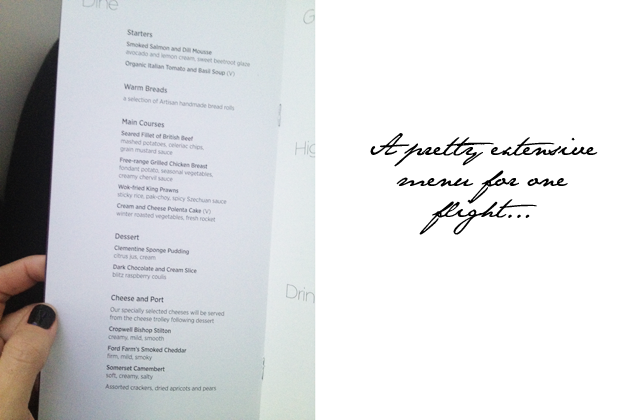 Dine
Starters
Smoked Salmon and Dill Mousse
avocado and lemon cream, sweet beetroot glaze
Organic Italian Tomato and Basil Soup (V)
Warm Breads
a selection of Artisan handmade bread rolls
Main Courses
Seared Fillet of British Beef
mashed potatoes, celeriac chips,
grain mustard sauce
Free-range Grilled Chicken Breast
fondant potato, seasonal vegetables,
creamy chervil sauce
Wok-fried King Prawns
sticky rice, pak-choy, spicy Szechuan sauce
Cream and Cheese Polenta Cake (V)
winter roasted vegetables, fresh rocket
Dessert
Clementine Sponge Pudding
citrus jus, cream
Dark Chocolate and Cream Slice
blitz raspberry coulis
Cheese and Port
Our specially selected cheeses will be served
from the cheese trolley following dessert
Cropwell Bishop Stilton
creamy, mild, smooth
Ford Farm's Smoked Cheddar
firm, mild, smoky
Somerset Camembert
soft, creamy, salty
Assorted crackers, dried apricots and pears
A pretty extensive
menu for one
flight...